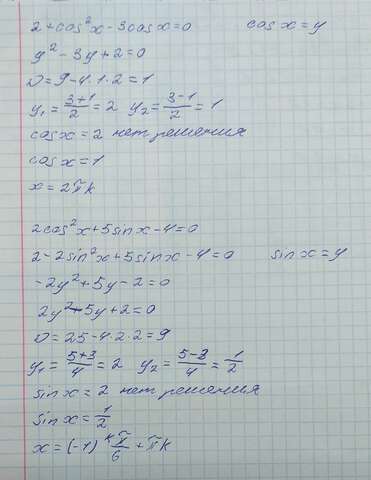 2+cos²x-3cosx=0 cosx=y
y²-3y+2=0
D=9-4·1·2=1
y₁=(3+1)/2=2 y₂=(3-1)/2=1
cosx=2 нет решения
cosx=1
x=2πk
2cos²x+5sinx-4=0
2-2sin²x+5sinx-4=0 sinx=y
-2y²+5y-2=0
2y²-5y+2=0
D=25-4·2·2=9
y₁=(5+3)/4=2 y₂=(5-3)/4=1/2
sinx=2 нет решения
sinx=1/2
x=(-1)ᵏ π/6+πk